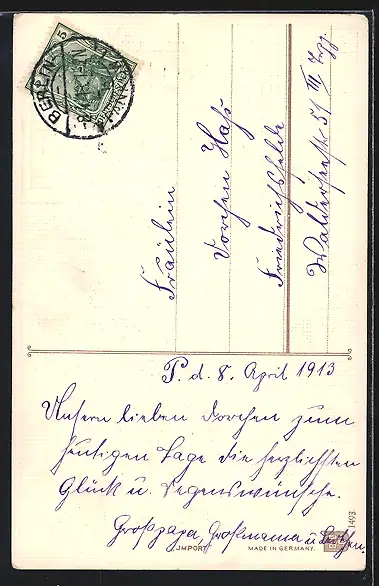 5
BERLIN
Fräulein
Dorchen Haß
Friedrichsfelde
Walderseestr. 31 III Trpp.
P. d. 8. April 1913
Unsern lieben Dorchen zum
heutigen Tage die herzlichsten
Glück u. Segenswünsche.
Großpapa, Großmama u.
IMPORT
MADE IN GERMANY.
1493